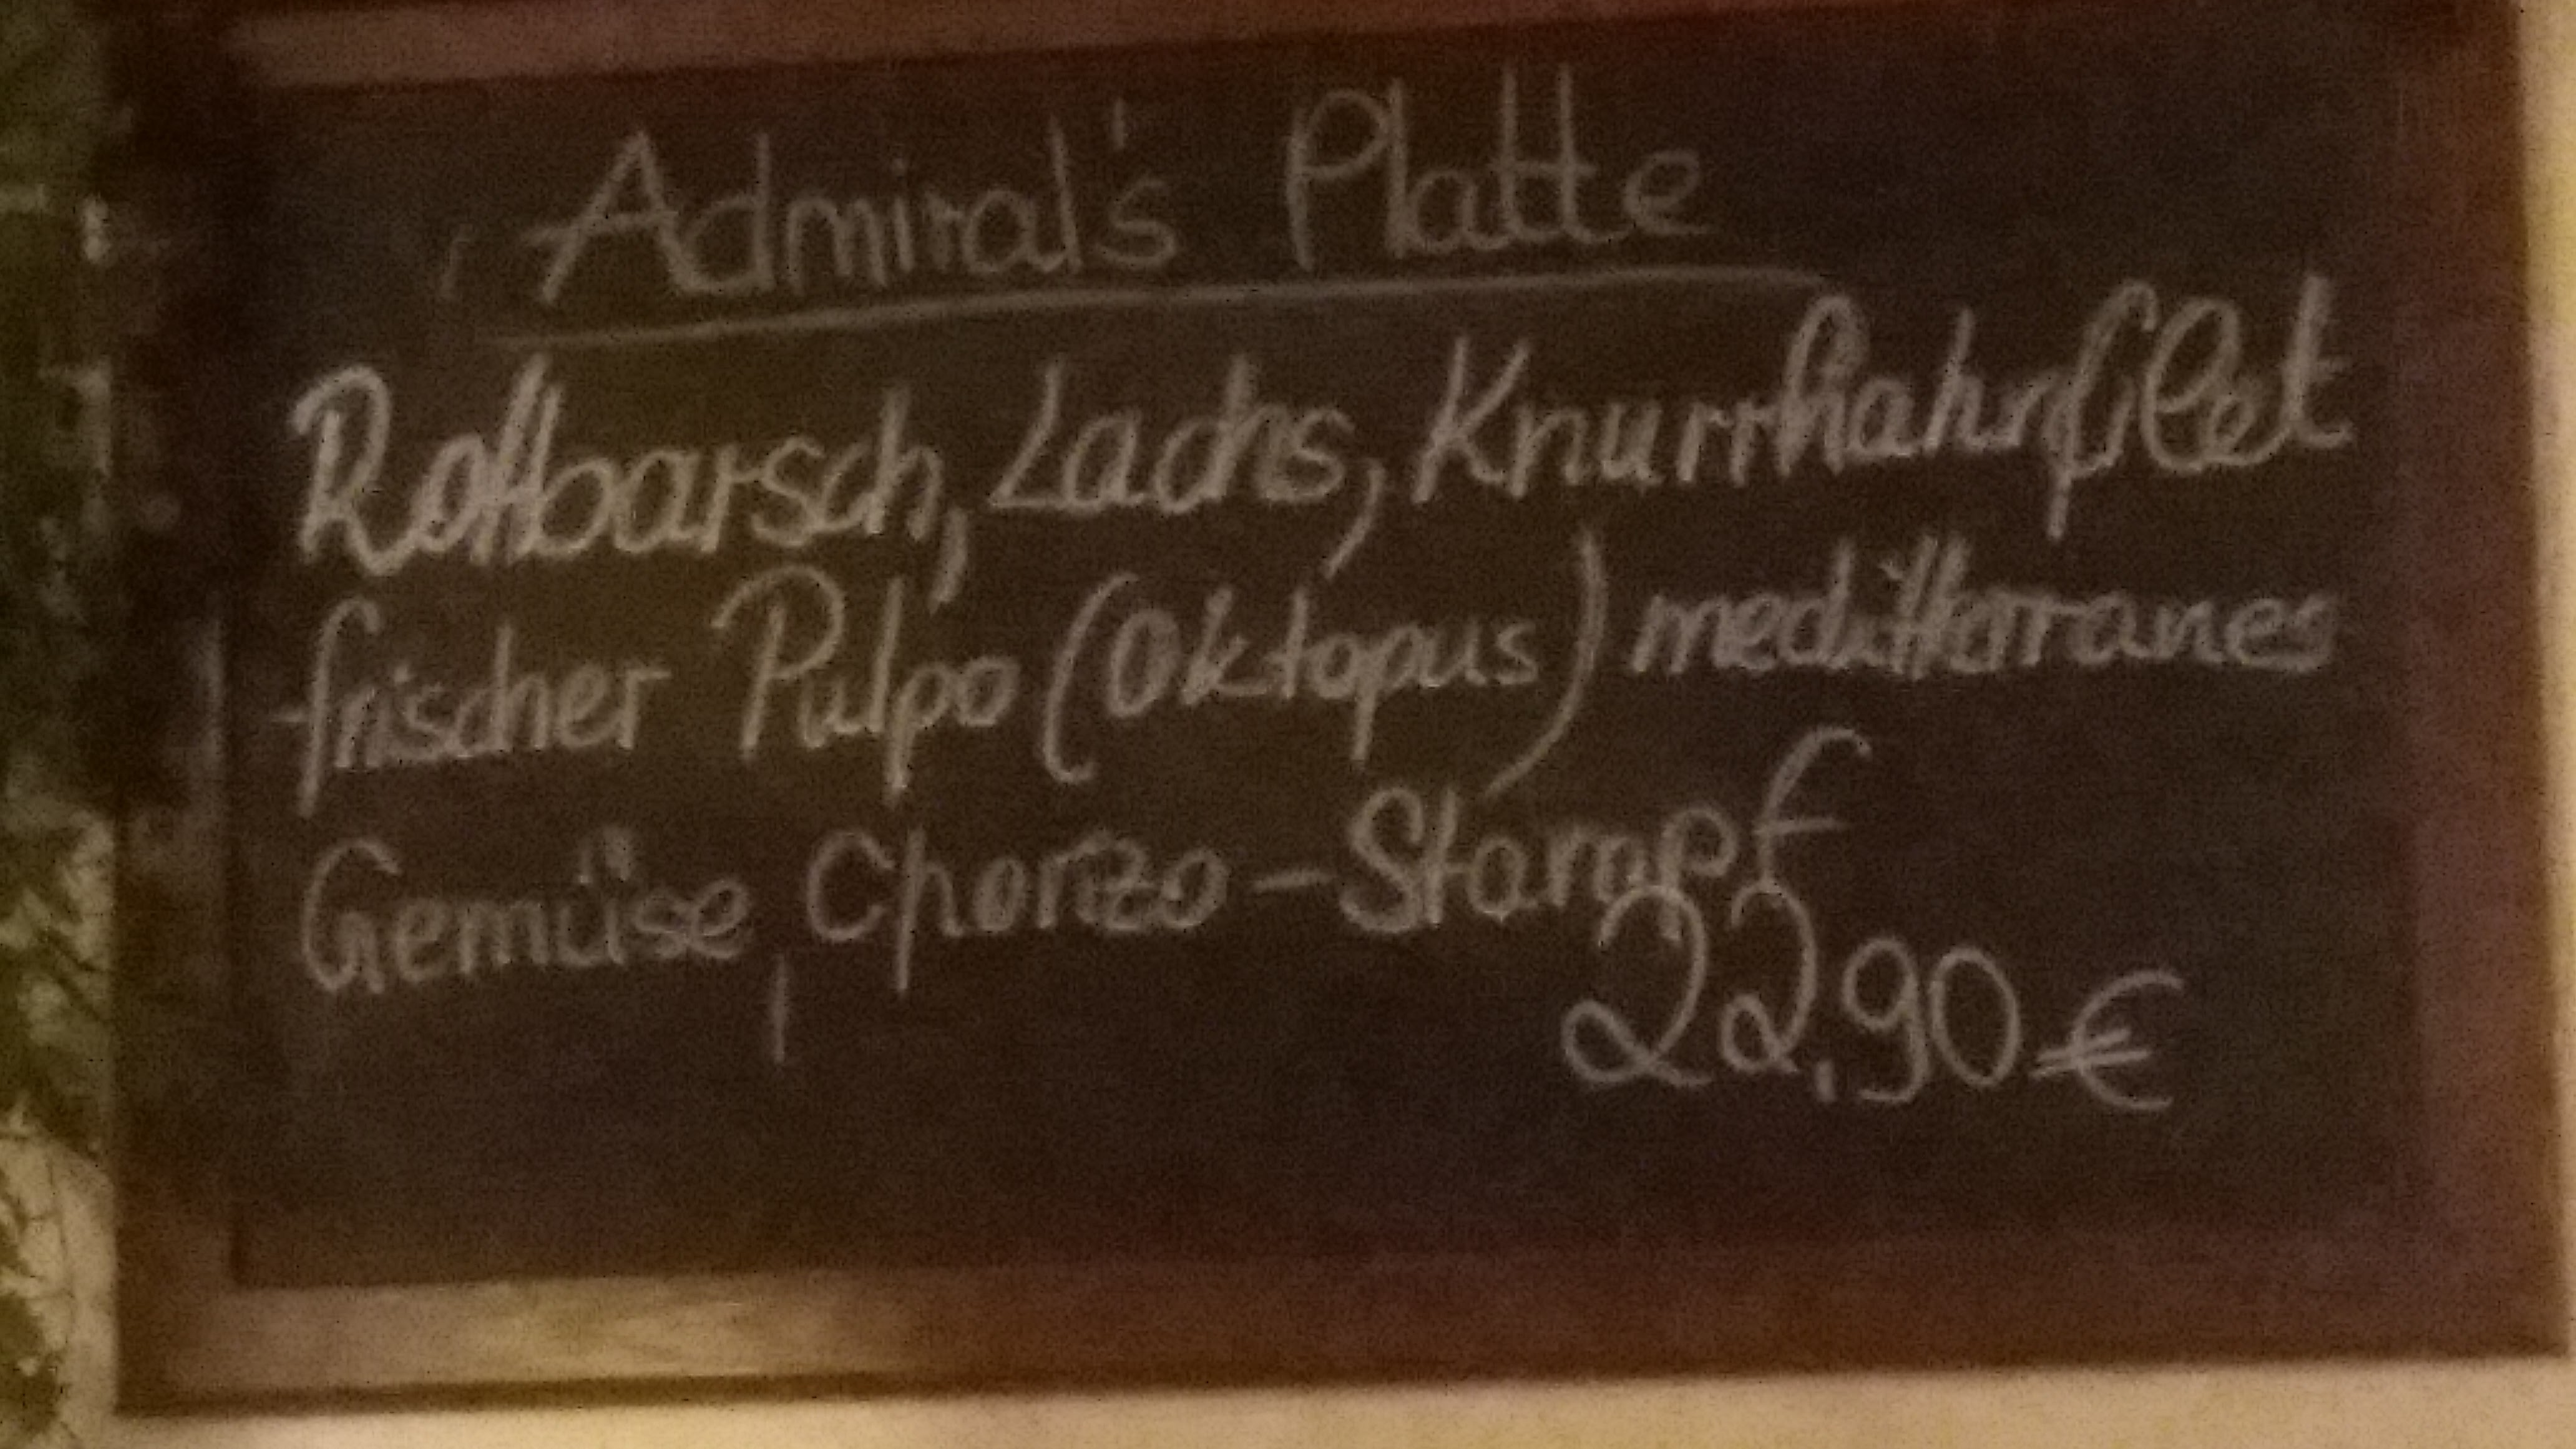 Admiral's Platte
Rotbarsch, Lachs, Knurrhahnfilet
frischer Pulpo (Oktopus) mediterranes
Gemüse, Chorizo-Stampf
22.90€